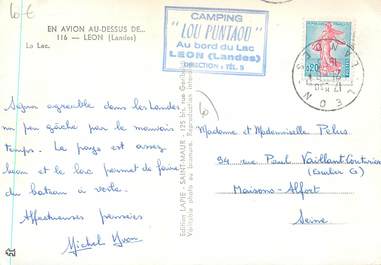 10€
EN AVION AU-DESSUS DE...
116 — LEON (Landes)
Le Lac.
CAMPING
"LOU PUNTAOU"
Au bord du Lac
LEON (Landes)
DIRECTION : TÉL. 5
0,20
LEON
LANDES
Séjour agréable dans les Landes
un peu gâché par le mauvais
temps. Le pays est assez
beau et le lac permet de faire
du bateau à voile.
Affectueuses pensées
Michel Yvon
Edition LAPIE - SAINT-MAUR - 125 bis, rue Garibaldi
Véritable photo au bromure. Reproduction
Madame et Mademoiselle Pelus
94 rue Paul Vaillant-Couturier
Maisons-Alfort
Seine